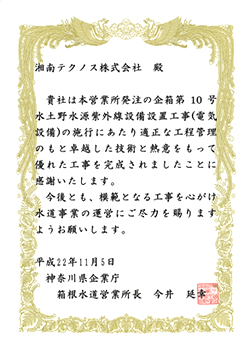 湘南テクノス株式会社 殿
貴社は本営業所発注の企箱第10号
水土野水源紫外線設備設置工事(電気
設備)の施行にあたり適正な工程管理
のもと卓越した技術と熱意をもって
優れた工事を完成されましたことに
感謝いたします。
今後とも、模範となる工事を心がけ
水道事業の運営にご尽力を賜ります
ようお願いします。
平成22年11月5日
神奈川県企業庁
箱根水道営業所長 今井 延幸